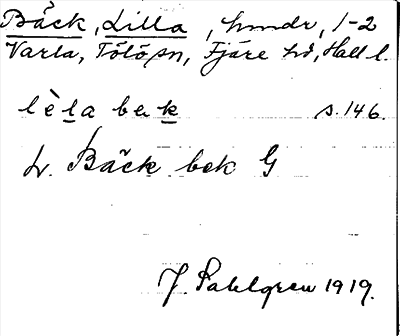 Bäck, Lilla, hmdr, 1-2
Varla, Tölö sn, Fjäre hd, Hall l.
lè̱la bek s. 146.
Lr. Bäck bek G
J. Sahlgren 1919.